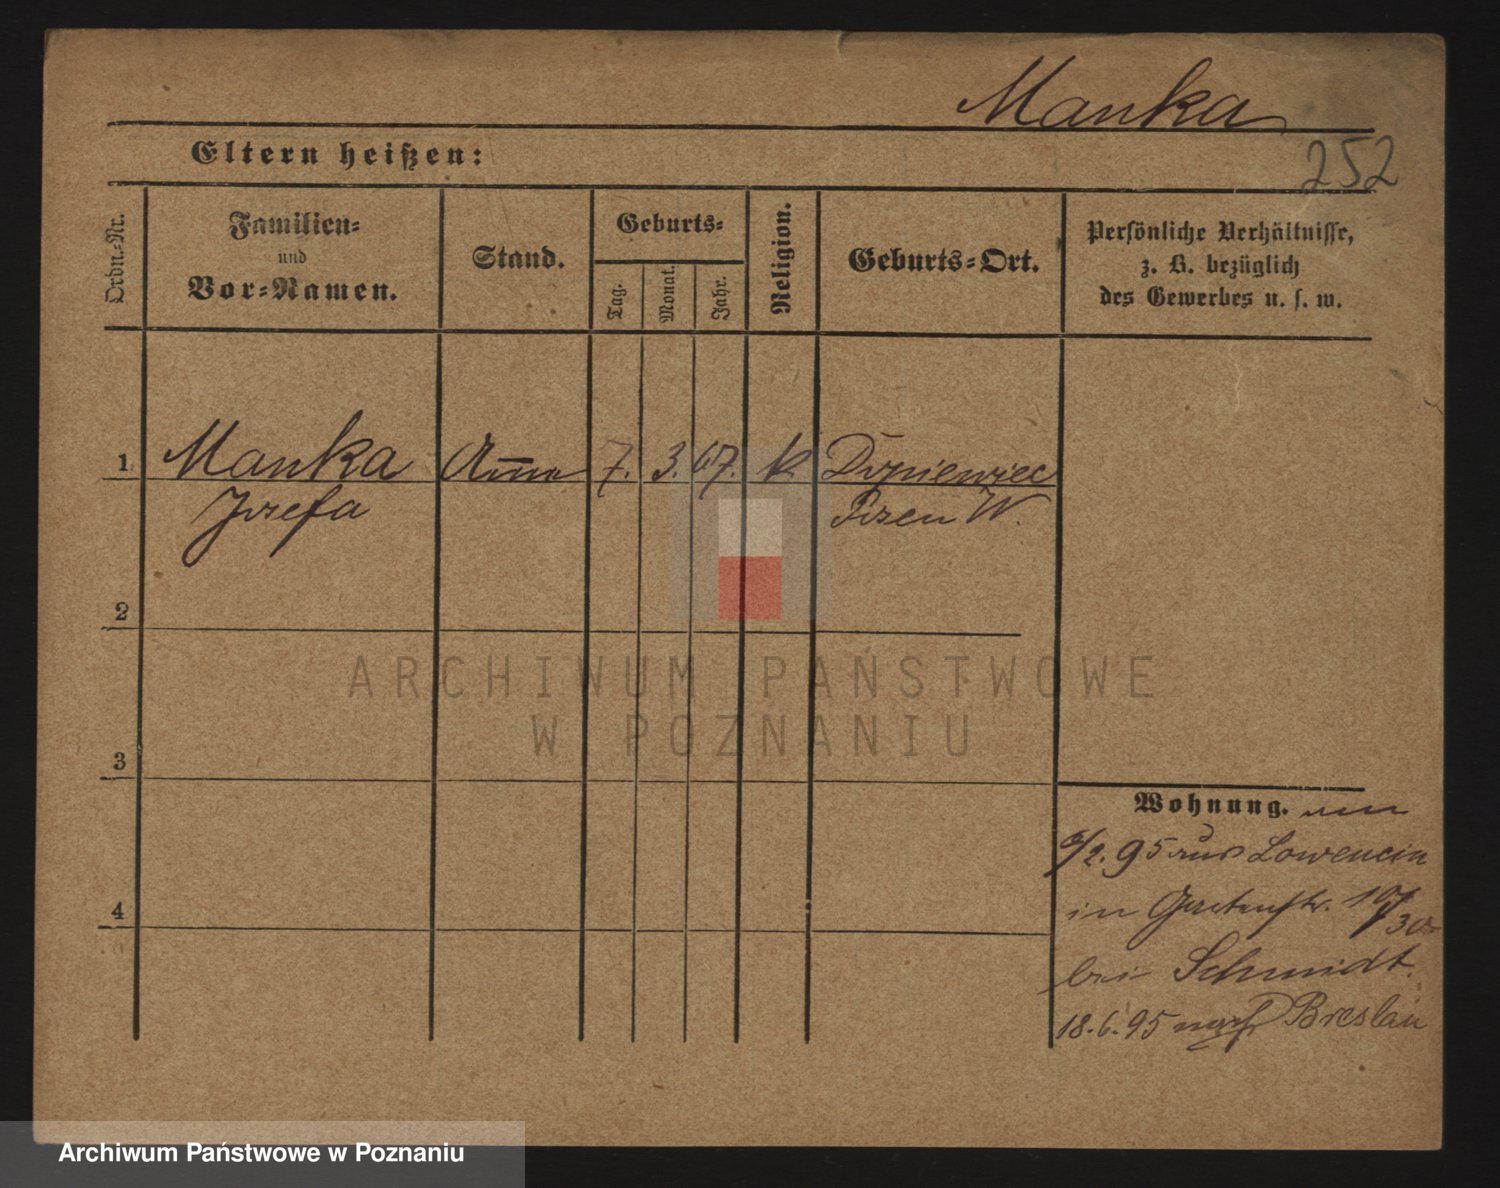 Manka
252
Eltern heißen:
Ordn.-Nr.
Familien-
und
Vor-Namen.
Stand.
Geburts-
Tag.
Monat.
Jahr.
Religion.
Geburts-Ort.
Persönliche Verhältnisse,
z. B. bezüglich
des Gewerbes u. s. w.
1 Manka 7. 3. 67. k Dopiewiec
Josefa Posen W.
2
3
4
Wohnung.
/2. 95 aus Lowencin
in Gartenstr.
bei Schmidt.
18.6.95 nach Breslau
ARCHIWUM PAŃSTWOWE
W POZNANIU
Archiwum Państwowe w Poznaniu